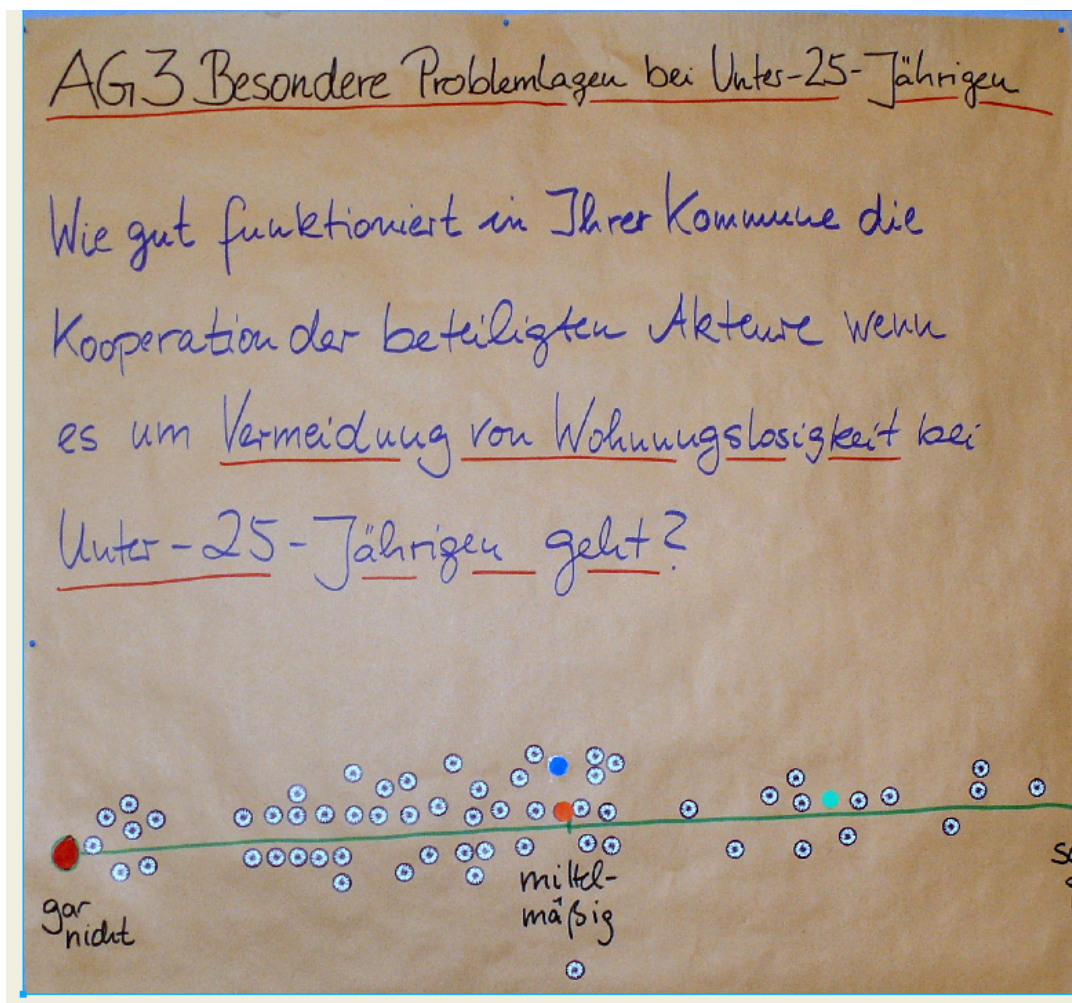 AG3 Besondere Problemlagen bei Unter-25-Jährigen
Wie gut funktioniert in Ihrer Kommune die
Kooperation der beteiligten Akteure wenn
es um Vermeidung von Wohnungslosigkeit bei
Unter-25-Jährigen geht?
gar
nicht
mittel-
mäßig